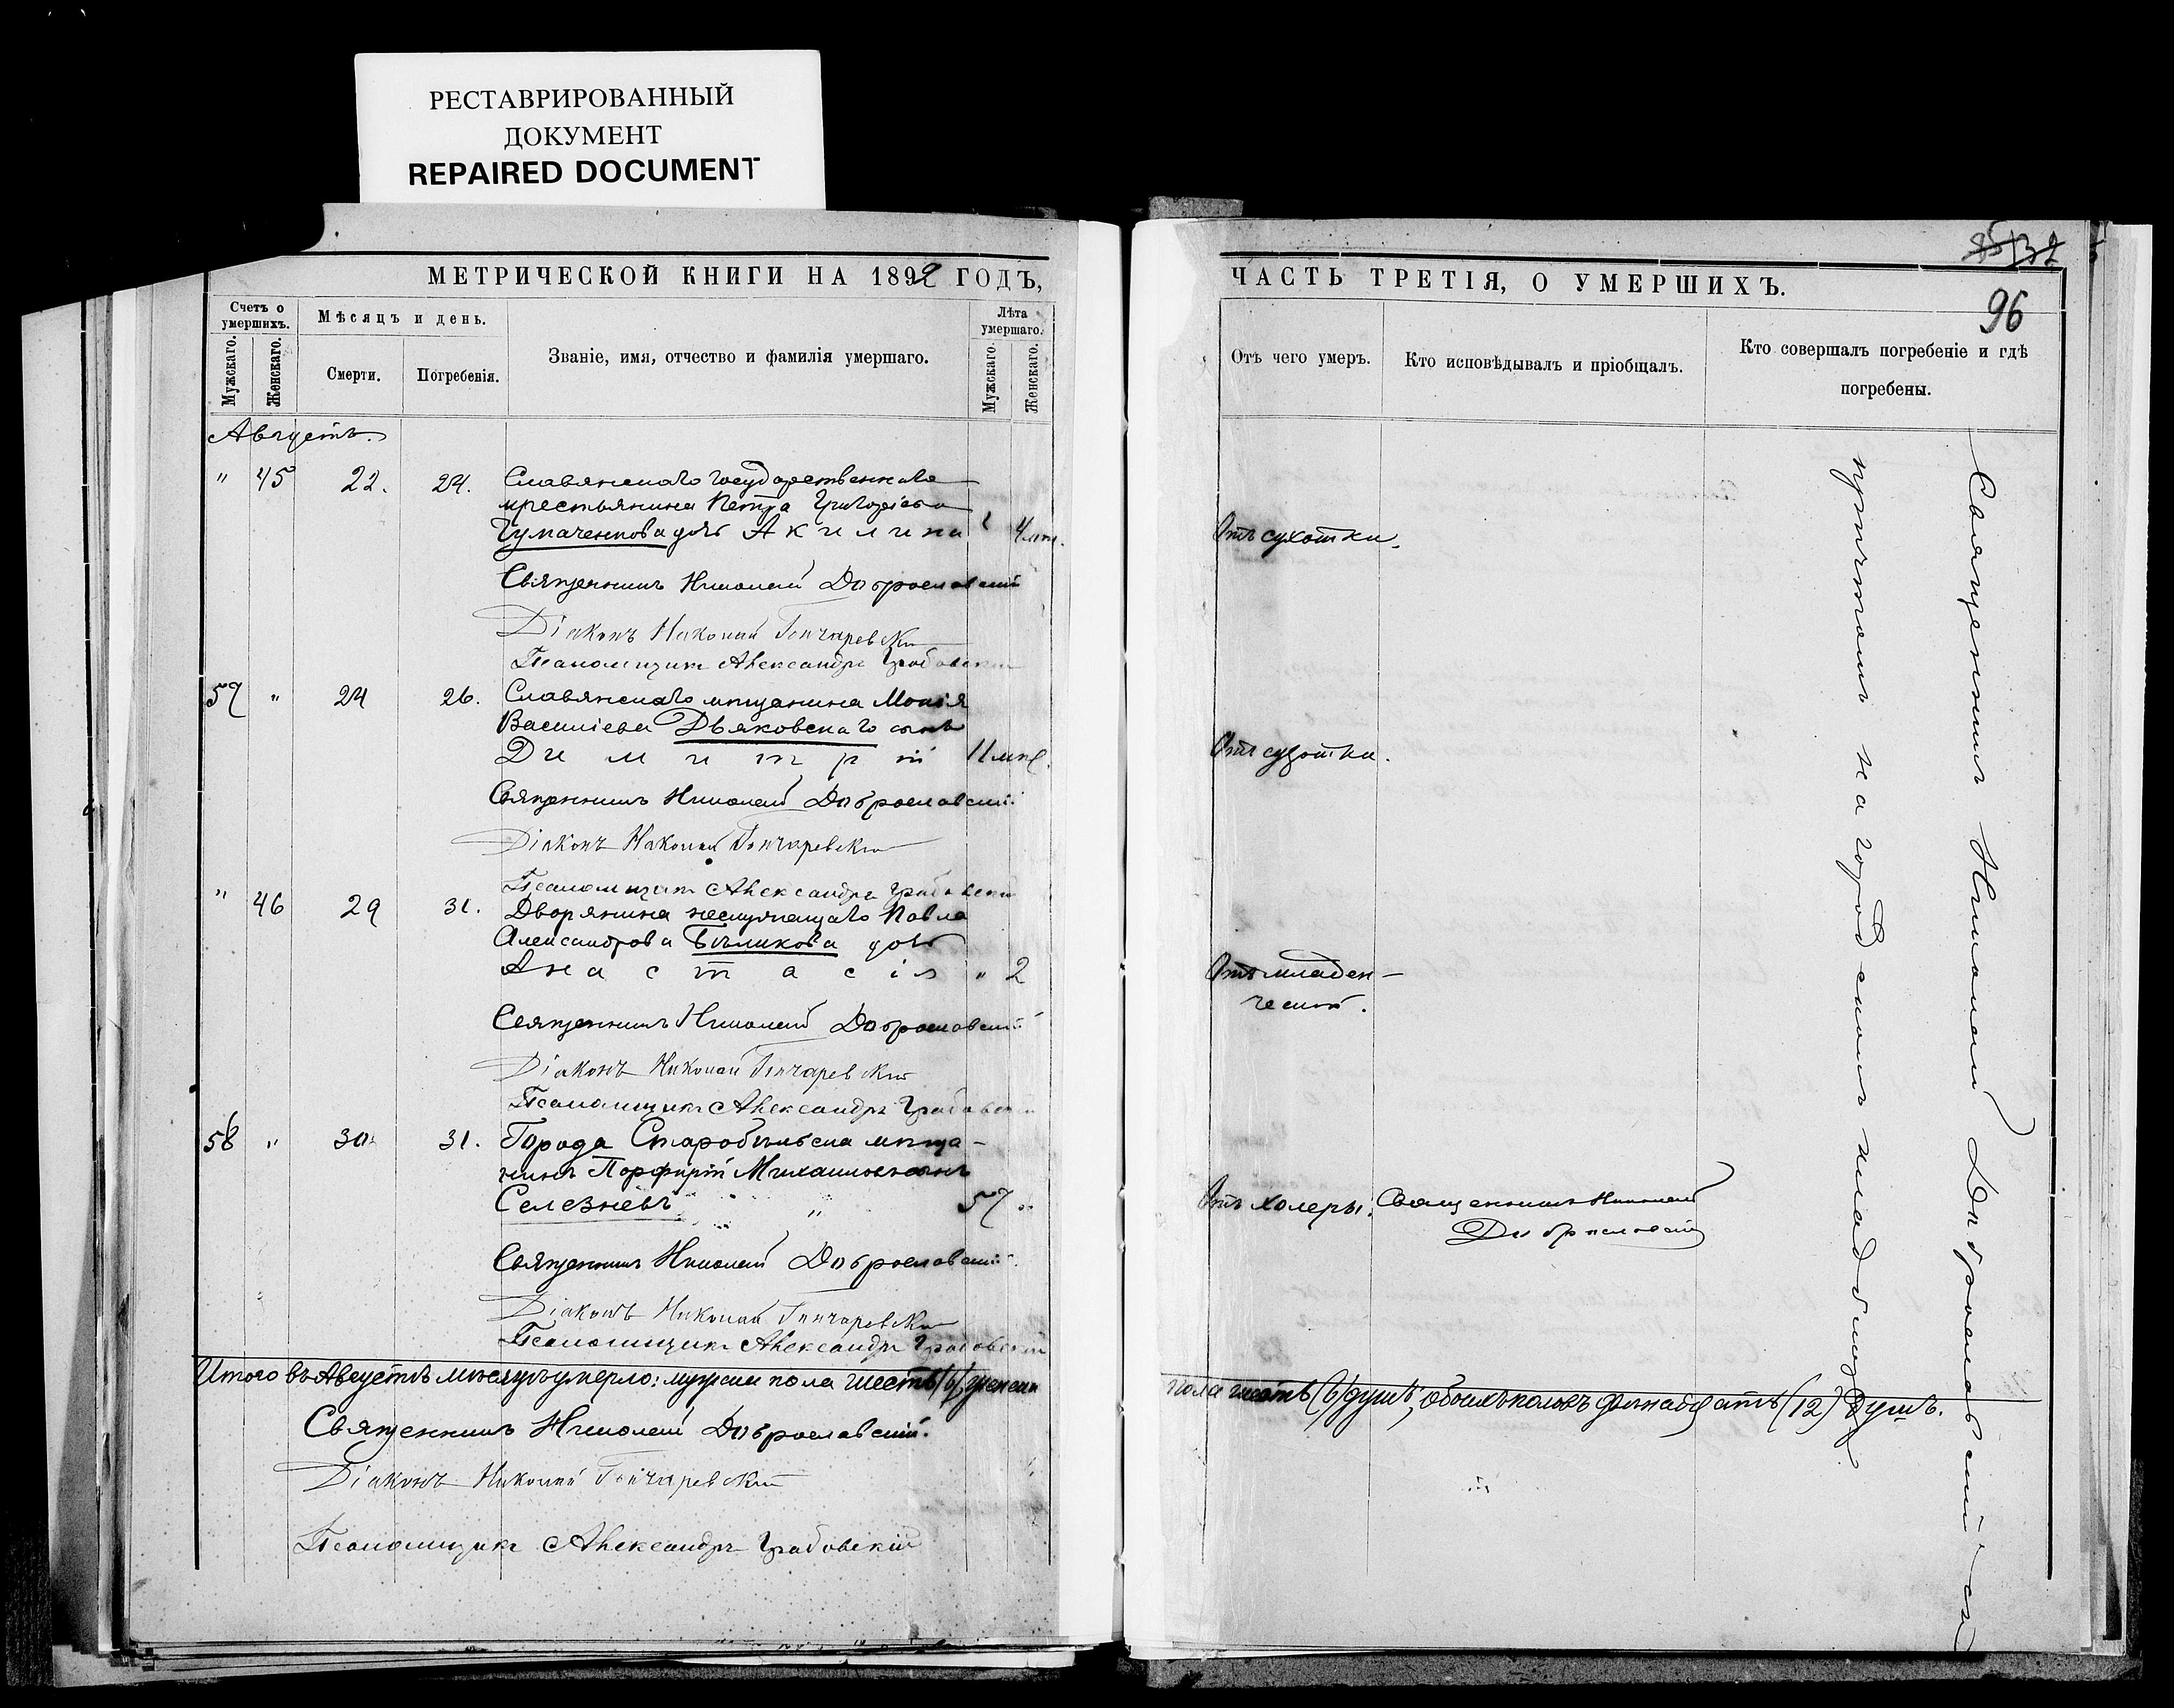 РЕСТАВРИРОВАННЫЙ
ДОКУМЕНТ
REPAIRED DOCUMENT
МЕТРИЧЕСКОЙ КНИГИ НА 1892 ГОДЪ,
Счетъ о умершихъ.
Мужскаго.
Женскаго.
Мѣсяцъ и день.
Смерти.
Погребенія.
Званіе, имя, отчество и фамилія умершаго.
Лѣта умершаго.
Мужскаго.
Женскаго.
Августъ.
" 45 22. 24. Славянскаго государственнаго
крестьянина Петра Григоріева
Чумаченкова дочь Акилина
Священникъ Николай Доброславскій
Діаконъ Николай Гончаревскій
Псаломщикъ Александръ Грабовскій
57 " 24 26. Славянскаго мѣщанина
Василіева Дьяковскаго сынъ
Димитрій 11 мѣс.
Священникъ Николай Доброславскій
Діаконъ Николай Гончаревскій
Псаломщикъ Александръ Грабовскій
" 46 29 31. Дворянина неслужащаго Павла
Александрова Бѣликова дочь
Анастасія " 2
Священникъ Николай Доброславскій
Діаконъ Николай Гончаревскій
Псаломщикъ Александръ Грабовскій
58 " 30 31. Города Старобѣльска мѣща-
нинъ Порфирій Михаиловъ сынъ
Селезневъ " 57 "
Священникъ Николай Доброславскій
Діаконъ Николай Гончаревскій
Псаломщикъ Александръ Грабовскій
Итого въ Августѣ мѣсяцѣ умерло: мужска пола шесть (6), женска
Священникъ Николай Доброславскій.
Діаконъ Николай Гончаревскій
Псаломщикъ Александръ Грабовскій
96
ЧАСТЬ ТРЕТІЯ, О УМЕРШИХЪ.
Отъ чего умеръ.
Кто исповѣдывалъ и пріобщалъ.
Кто совершалъ погребеніе и гдѣ
погребены.
Отъ сухотки.
Отъ сухотки.
Отъ младен-
ческой.
Отъ холеры. Священникъ Николай
Доброславскій
Священникъ Николай Доброславскій съ
причтомъ на городскомъ кладбищѣ
пола шесть (6) душъ, обоихъ половъ двѣнадцать (12) душъ.